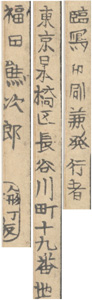 臨写印刷兼発行者
東京日本橋区長谷川町十九番地
福田熊次郎